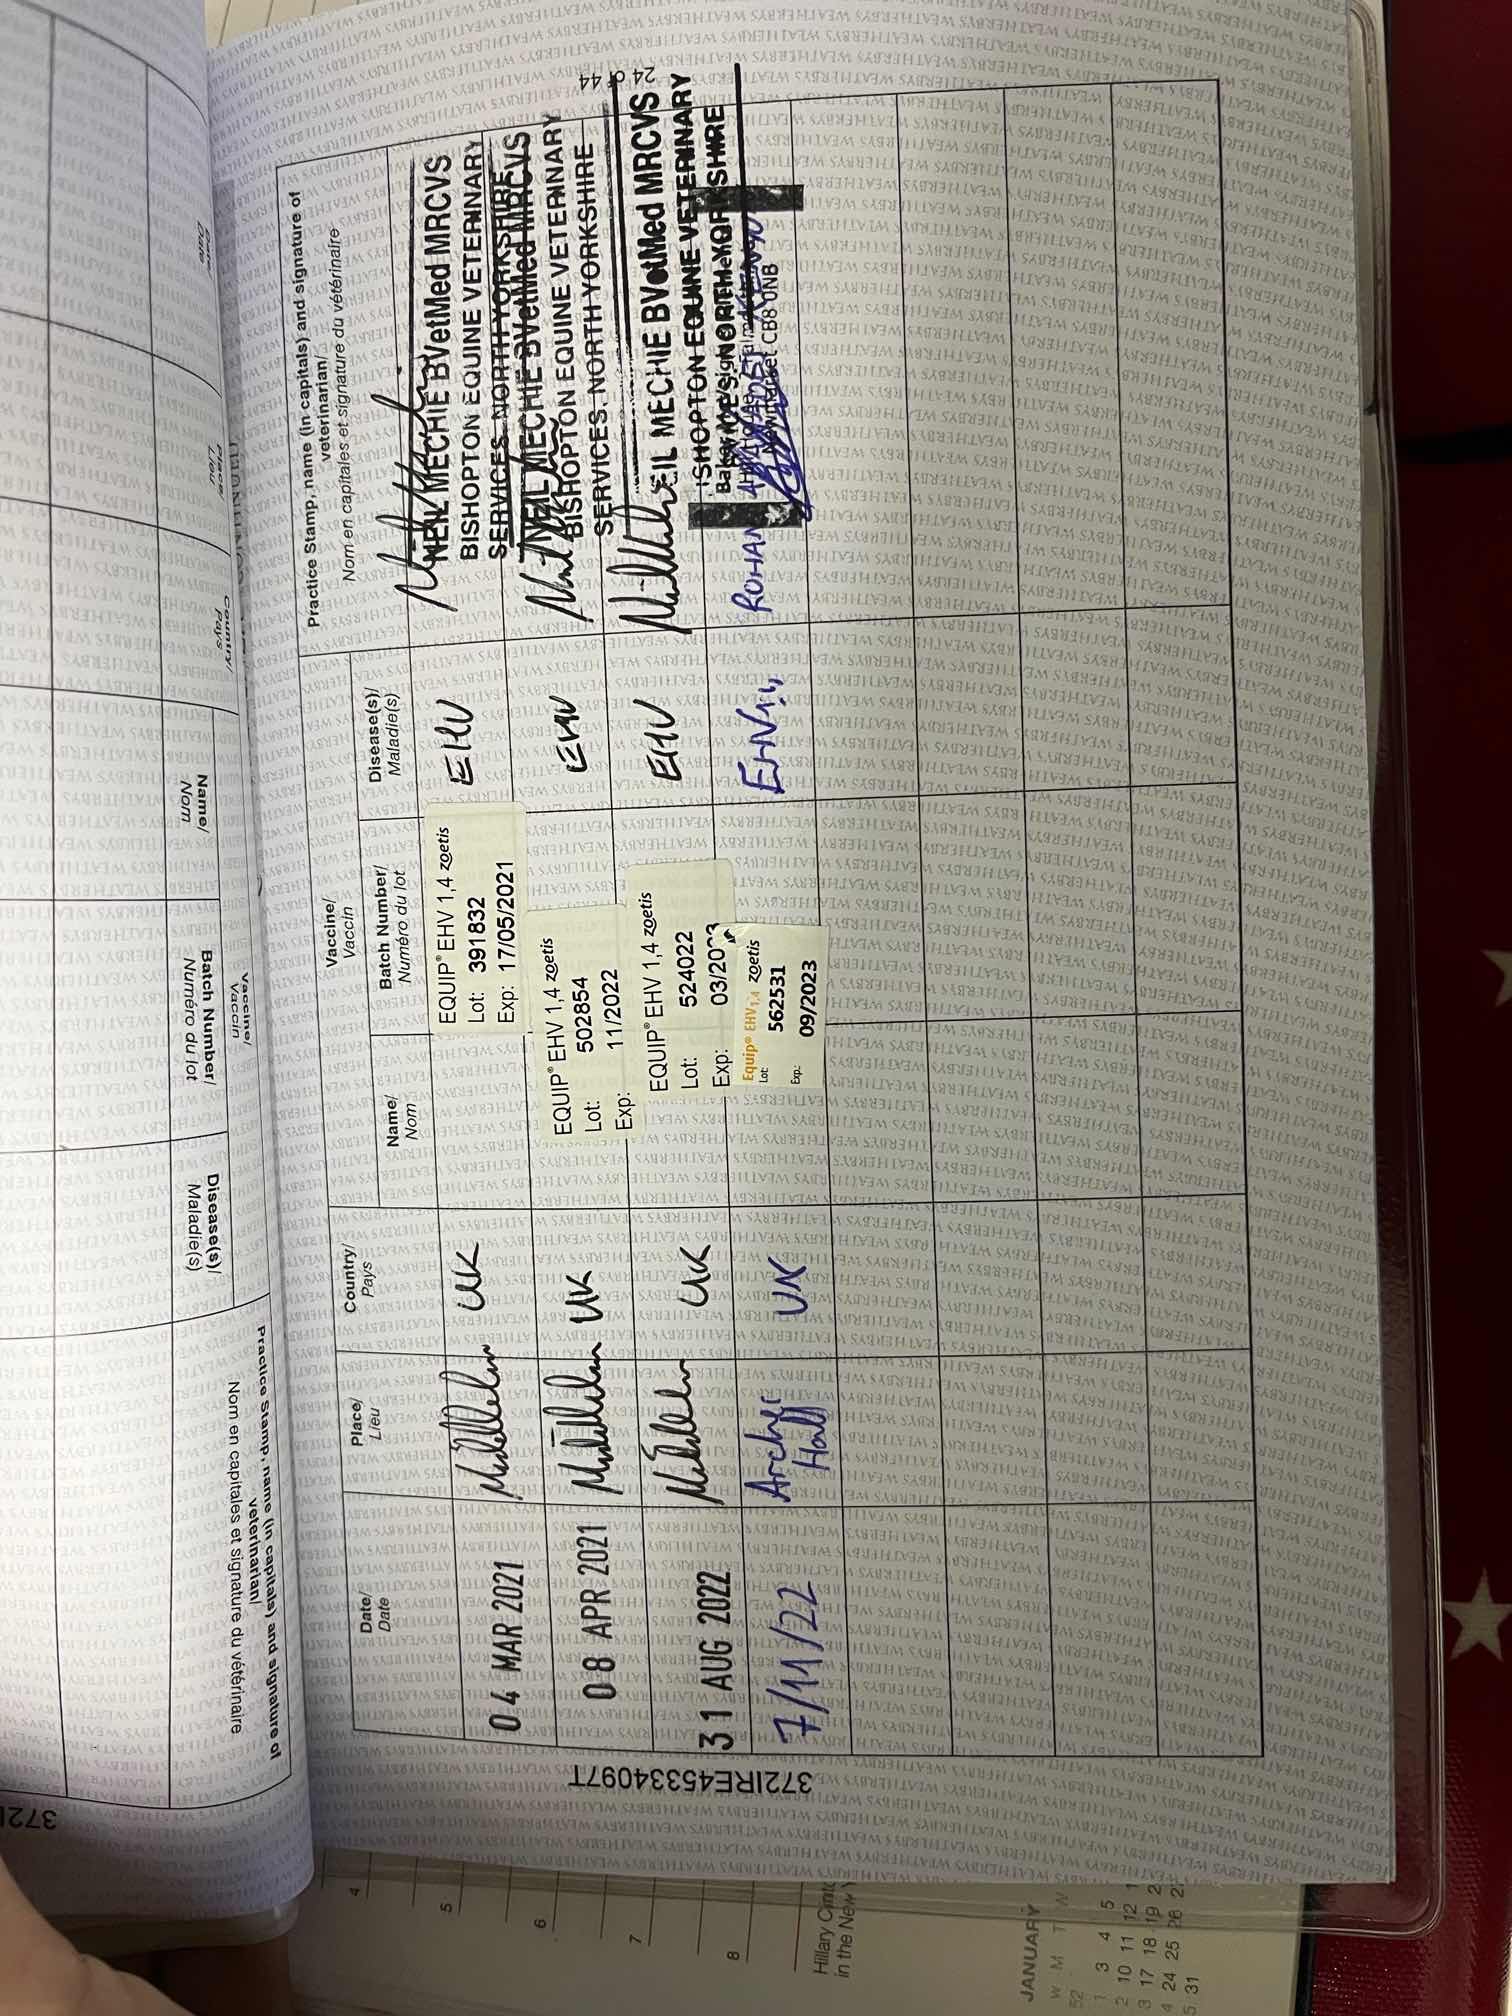 Practice Stamp, name (in capitals) and signature of
veterinarian/
Nom en capitales et signature du vétérinaire
Vaccine/
Vaccin
Date/
Date
Place/
Lieu
Country/
Pays
Name/
Nom
Batch Number/
Numéro du lot
Disease(s)/
Maladie(s)
04 MAR 2021
UK
EQUIP® EHV 1,4 zoetis
Lot: 391832
Exp: 17/05/2021
EHV
NEIL MECHIE BVetMed MRCVS
BISHOPTON EQUINE VETERINARY
SERVICES. NORTH YORKSHIRE
08 APR 2021
UK
EQUIP® EHV 1,4 zoetis
Lot: 502854
Exp: 11/2022
EHV
NEIL MECHIE BVetMed MRCVS
BISHOPTON EQUINE VETERINARY
SERVICES. NORTH YORKSHIRE
31 AUG 2022
UK
EQUIP® EHV 1,4 zoetis
Lot: 524022
Exp: 03/2023
EHV
NEIL MECHIE BVetMed MRCVS
ISHOPTON EQUINE VETERINARY
NORTH YORKSHIRE
7/11/22
Archer
Hall
UK
Equip® EHV1,4 zoetis
Lot: 562531
Exp: 09/2023
ROHAN
Newmarket CB8 0NB
24 of 44
372IRE45334097T
Date/
Date
Place/
Lieu
Country/
Pays
Vaccine/
Vaccin
Name/
Nom
Batch Number/
Numéro du lot
Disease(s)/
Maladie(s)
Practice Stamp, name (in capitals) and signature of
veterinarian/
Nom en capitales et signature du vétérinaire
4
5
6
7
8
Hillary Clinto
in the New Y
JANUARY
W M T W
52
1 3 4 5
2 10 11 12
3 17 18 19
4 24 25 26
5 31